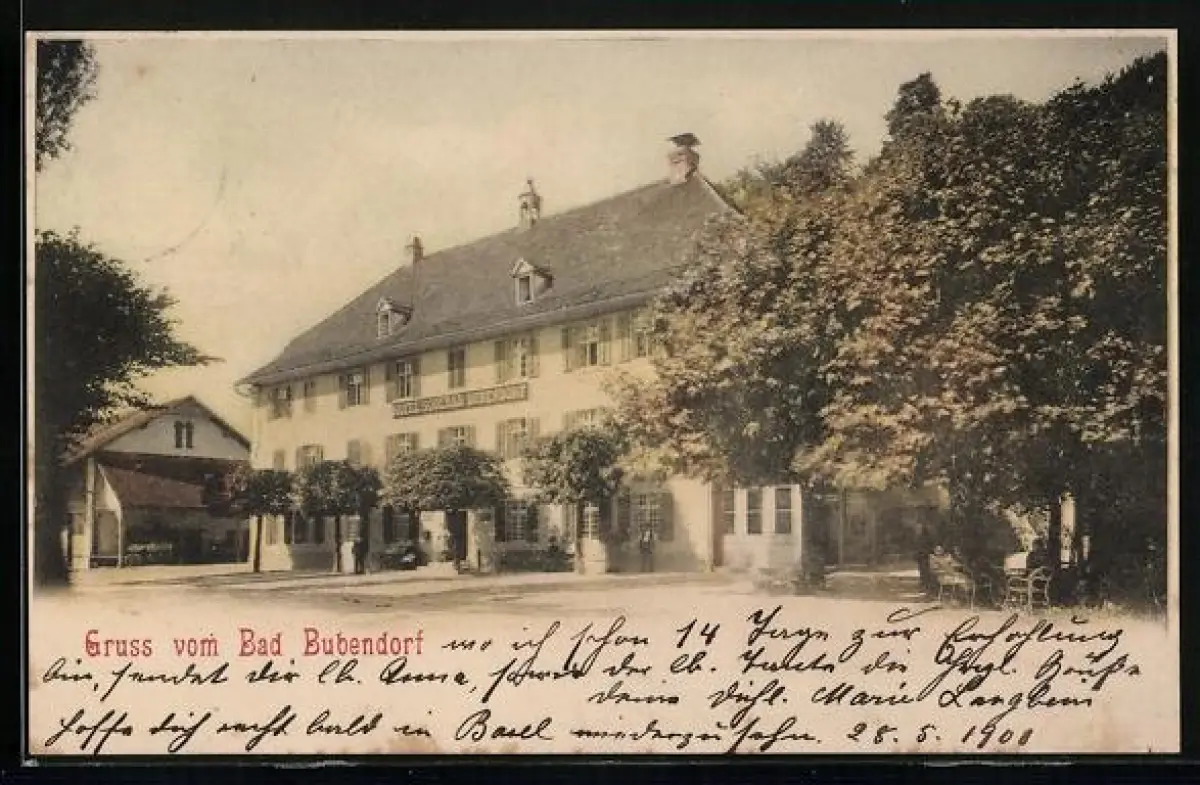 HOTEL SOOLBAD BUBENDORF
Gruss vom Bad Bubendorf wo ich schon 14 Tage zur Erhohlung
bin, sendet dir lb. Anna, sowie der lb. Tante die Herzl. Grüße
deine Dichl. Marie Langbein
hoffe dich recht bald in Basel wiederzusehn. 28. 5. 1901